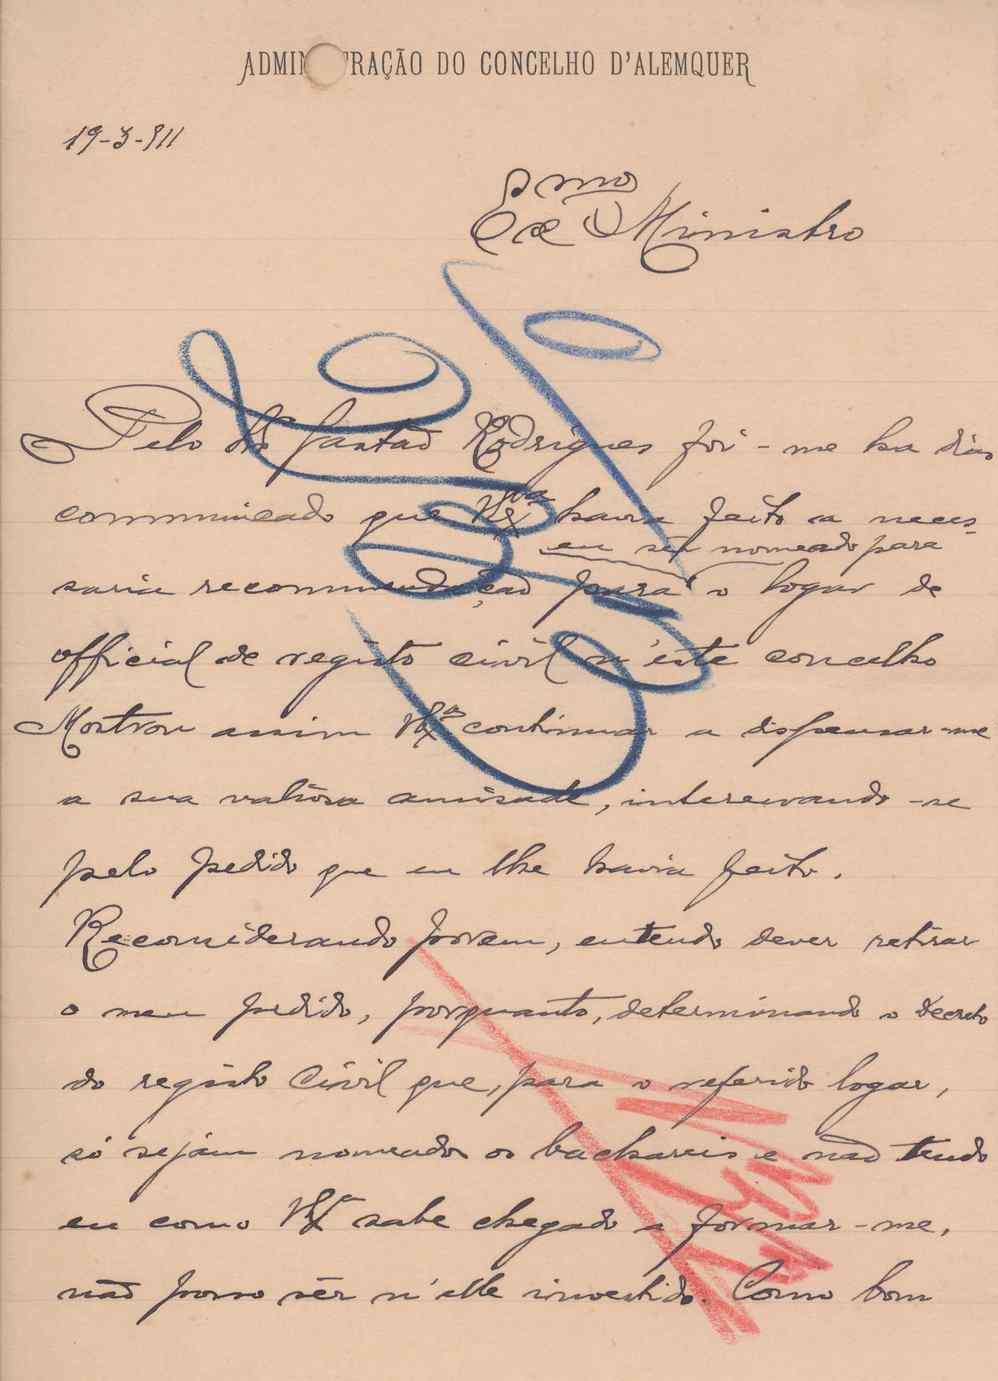 ADMINISTRAÇÃO DO CONCELHO D'ALEMQUER
19-3-911
Exmo Ministro
Pelo Gastão Rodrigues foi-me ha dias
communicado que V. Exa havia feito a neces-
eu ser nomeado para
saria recommendação para o logar de
official de registo civil n'este concelho
Mostrou assim V. Exa continuar a dispensar-me
a sua valiosa amisade, interessando-se
pelo pedido que eu lhe havia feito.
Reconsiderando porem, entendo dever retirar
o meu pedido, porquanto, determinando o Decreto
do registo Civil que, para o referido logar,
só sejam nomeados os bachareis e não tendo
eu como V. Exa sabe chegado a formar-me,
não posso sêr n'elle investido. Como bom